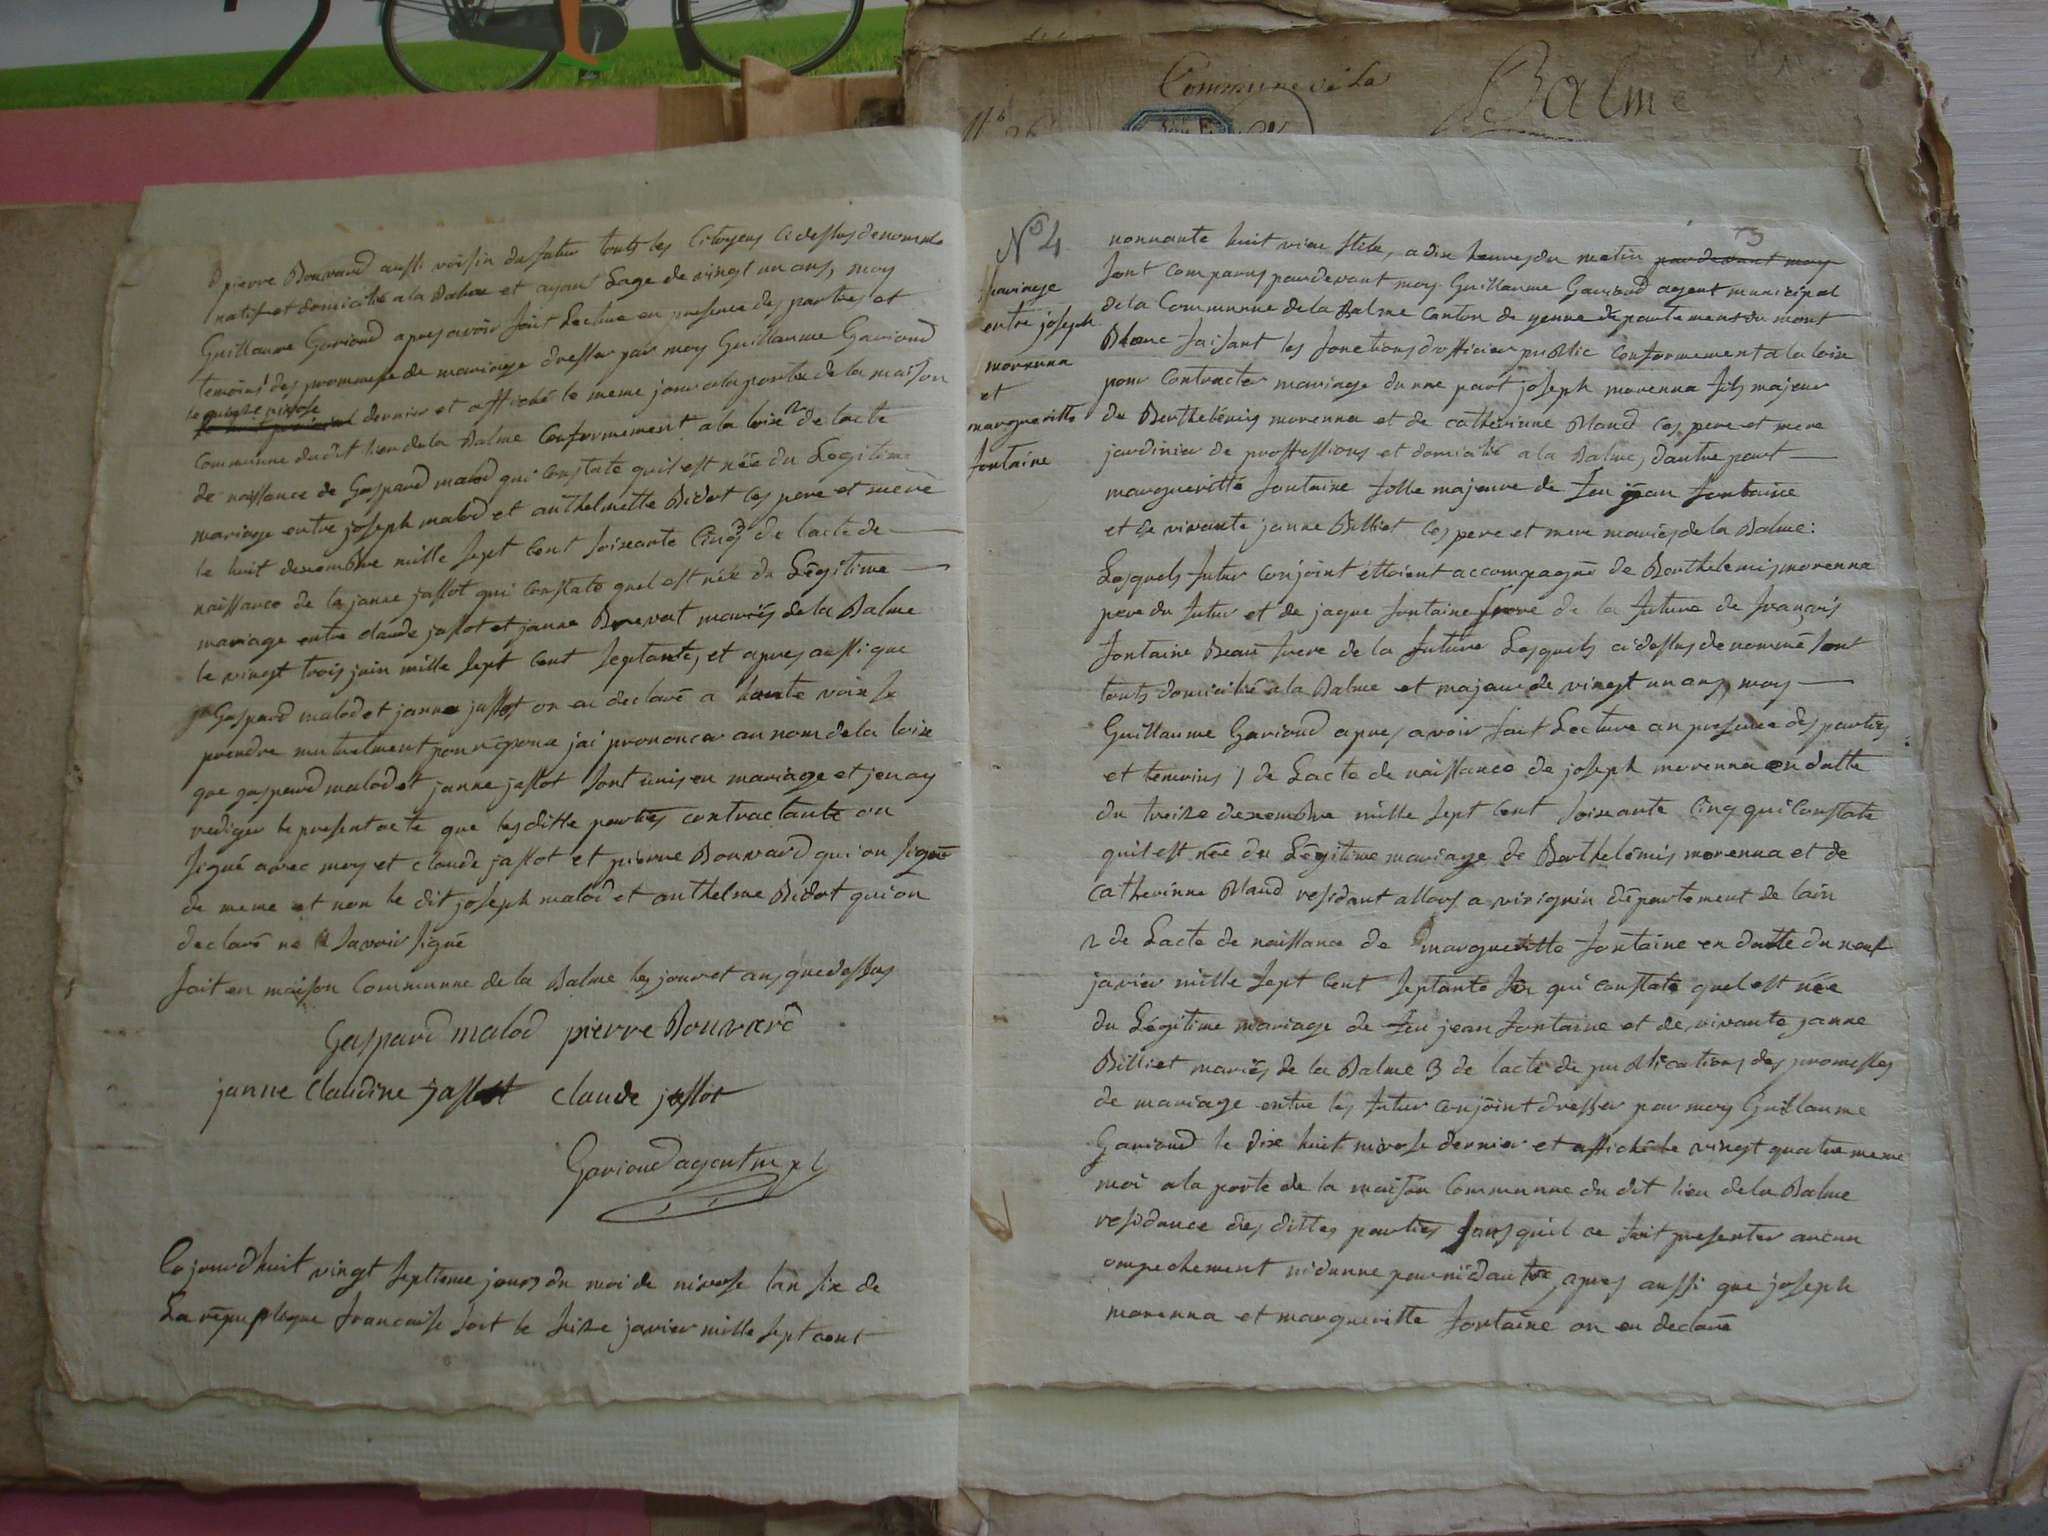 Commune de la Balme
pierre Bouvard aussi voisin du futur touts les Citoyens cidessus denommés
natif et domicilié a la Balme et ayant Lage de vingt un ans, moy
Guillaume Garioud apres avoir fait Lectue en presence des parties et
temoins 1 des prommese de mariage dresser par moy Guillaume Garioud
le quinze nivose
dernier et affiché le meme jour a la porte de la maison
Commune dudit lieu de la Balme Conformement a la loix 2 de lacte
de naissance de Gaspard malod qui constate quil est née du Legitime
mariage entre joseph malod et anthelmette Bidot ces pere et mere
le huit desembre mille sept cent soixante Cinq 3 de lacte de
naissance de la janne jassot qui constate quel est née du Légitime
mariage entre claude jassot et janne Brevat mariés de la Balme
le vingt trois juin mille sept cent septante, et apres aussi que
Gaspard malod et janne jassot on eu declaré a haute voix se
prendre mutuelment pour éponse jai prononcer au nom de la loix
que gaspard malod et janne jassot sont unis en mariage et jen ay
rediger le present acte que les ditte parties contractante on
signé avec moy et claude jassot et pierre Bouvard qui on signé
de meme et non le dit joseph malod et anthelme Bidot qui on
declaré ne savoir signé
fait en maison Communne de la Balme les jour et ans que dessus
Gaspard malod pierre Bouvard
janne Claudine jassot claude jassot
Garioud agent mpl
Cejourdhuit vingt septieme jours du moi de nivose lan six de
La republique francaise soit le seize javier mille sept cent
3
N° 4
mariage
entre joseph
morenna
et
margueritte
fontaine
nonnante huit vieu stile, a dix heures du matin pardevant moy
sont comparus pardevant moy Guillaume Garioud agent municipal
de la Communne de la Balme Canton de yenne departement du mont
Blanc faisant les fonctions dofficier public Conformement a la loix
pour Contracter mariage dunne part joseph morenna fils majeur
de Berthelémis morenna et de catherinne Blaud ces pere et mere
jardinier de proffessions et domicilié a la Balme, dautre part
margueritte fontaine fille majeure de feu jean fontaine
et de vivante janne Billiet ces pere et mere mariés de la Balme:
Lesquels futur conjoint éttoient accompagné de Berthelemis morenna
pere du futur et de jaque fontaine frere de la future de francois
fontaine Beau frere de la future Lesquels cidessus denommé sont
touts domicilié a la Balme et majeur de vingt un ans, moy
Guillaume Garioud apres avoir fait Lecture an presence des parties
et temoins 1 de Lacte de naissance de joseph morenna en datte
du treize desembre mille sept cent soixante Cinq qui Constate
quil est née du Légitime mariage de Berthelémis morenna et de
catherinne Blaud residant allors a virignin département de lain
2 de Lacte de naissance de margueritte fontaine en datte du neuf
javier mille sept cent septante six qui constate quel est née
du Légitime mariage de feu jean fontaine et de vivante janne
Billiet mariés de la Balme 3 de lacte de publications des promesses
de mariage entre les futur conjoint dresser par moy Guillaume
Garioud le dix huit nivose dernier et affiché le vingt quatre meme
moi a la porte de la maison Communne du dit lieu de la Balme
residance des dittes parties sans quil ce soit presenter aucun
ompechement nidunne par nidautre, apres aussi que joseph
morenna et margueritte fontaine on eu declaré